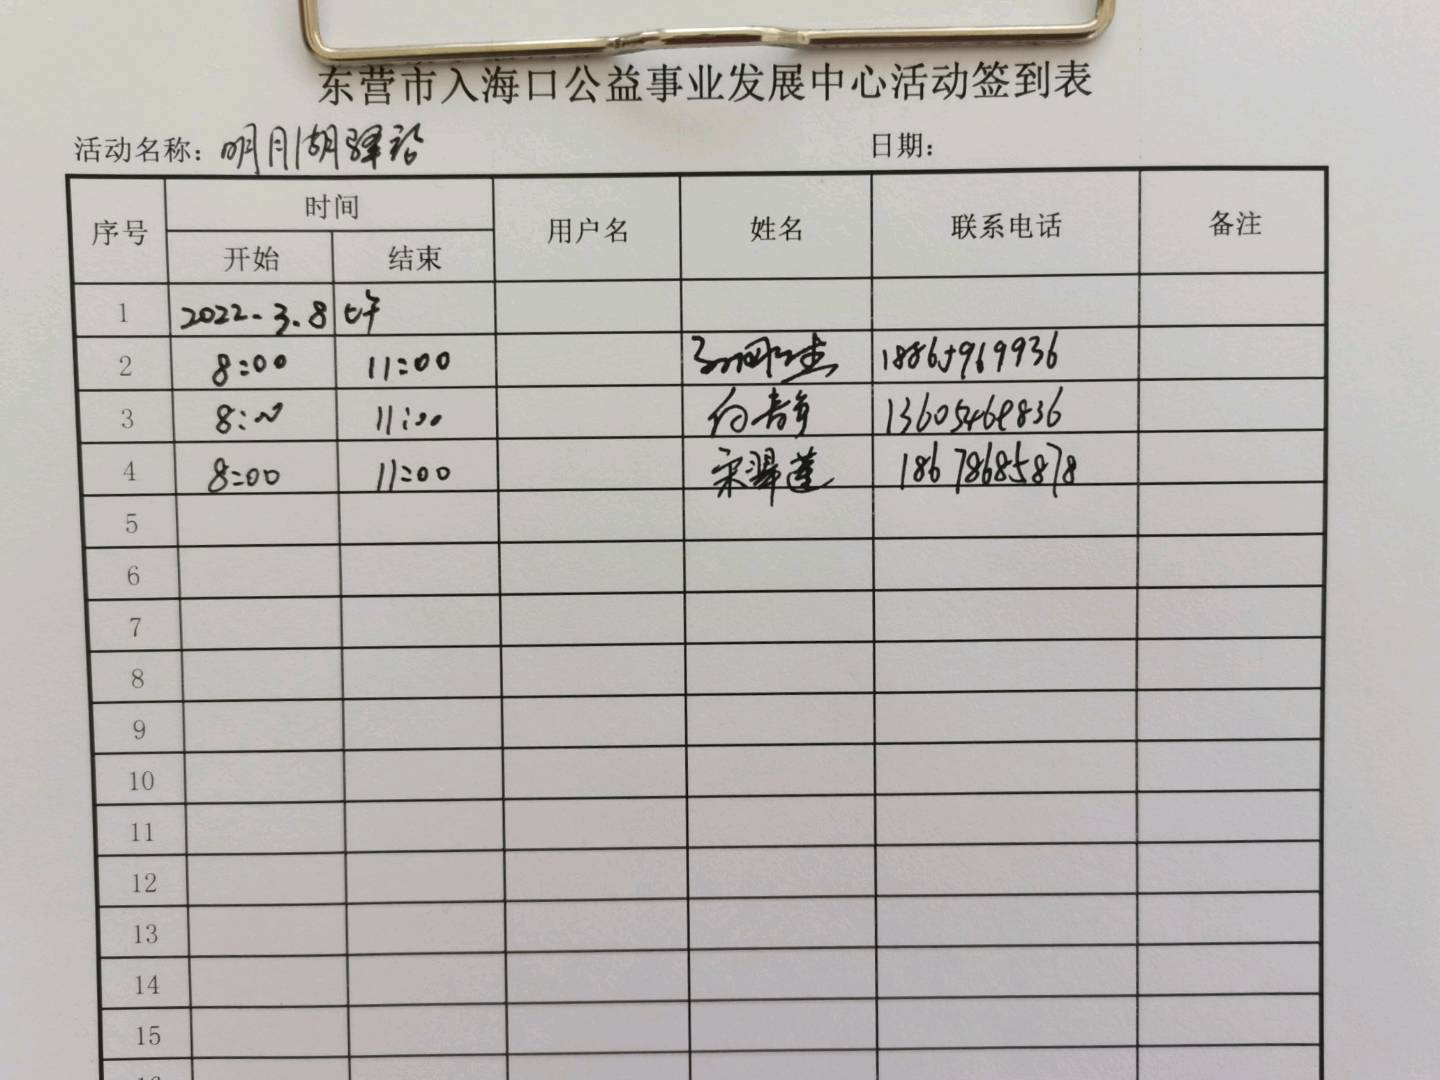 东营市入海口公益事业发展中心活动签到表
活动名称：明月湖驿站 日期：
序号 时间 用户名 姓名 联系电话 备注
开始 结束
1 2022.3.8 上午
2 8:00 11:00 18865969936
3 8:00 11:00 向静 13605468836
4 8:00 11:00 宋翠莲 18678685878
5
6
7
8
9
10
11
12
13
14
15